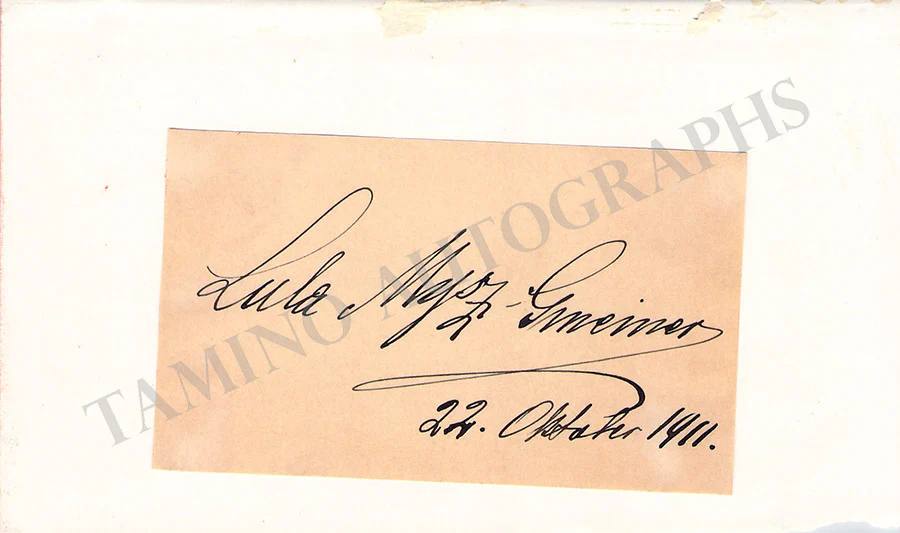 Lula Mysz-Gmeiner
22. Oktober 1911.
TAMINO AUTOGRAPHS